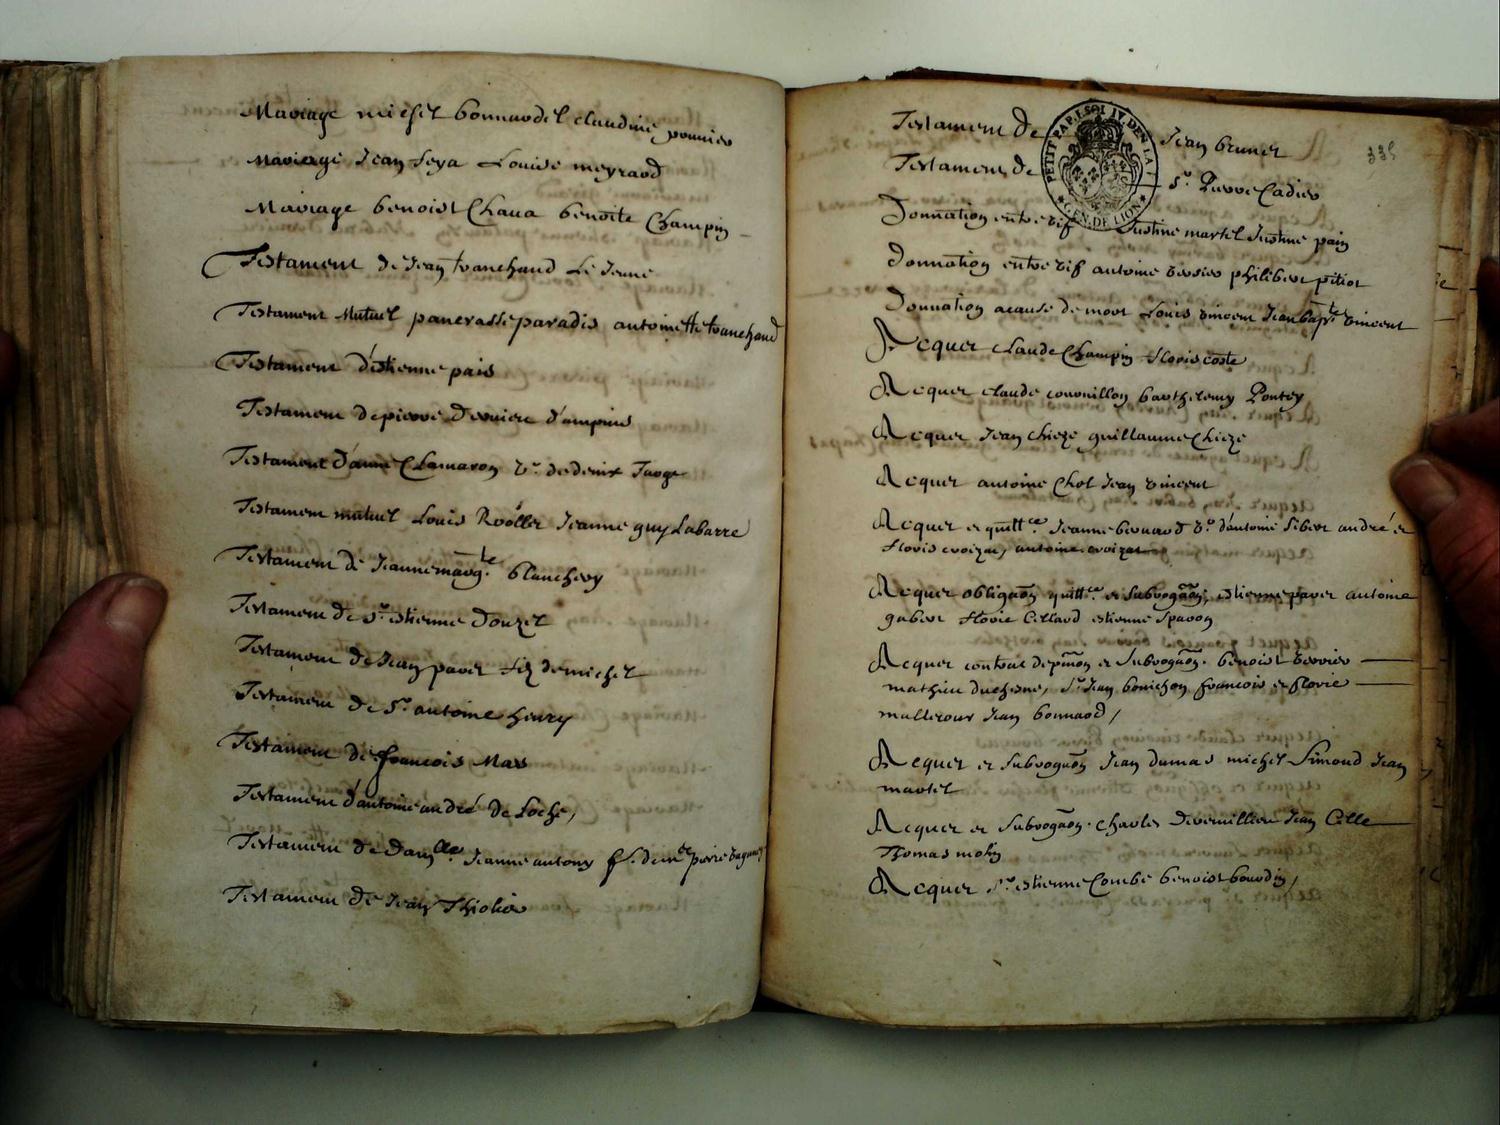 Mariage michel bonnardel claudine pounier
Mariage Jean Seya Louise meyraud
Mariage benoist Chava benoite Champin
Testament de Jean tranchand Le Jeune
Testament Mutuel pancrasse paradis antoinette tranchand
Testament d'estienne pais
Testament de pierre Derniere d'ampuis
Testament d'anne Chamaron v.e de denix
Testament mutuel Louis Rooller Jeanne guy Labarre
Testament de Jeanne marg.te blanchery
Testament de s.r estienne Douzel
Testament de Jean paret filz de michel
Testament de S.r antoine henry
Testament de francois Mas
Testament d'antoine andré de Loche,
Testament de Dam.lle Jeanne antony f. de m.e pierre
Testament de Jean Thiolier
Testament de Jean brunet
Testament de s.r Pierre Cadier
335
PETIT PAP. I SOL IV DEN LA F
GEN. DE LION
Donnation entre vif Justine martel Justine pain
Donnation entre vif antoine verrier philibert pitiot
Donnation a cause de mort Louis vincent Jean bap.te vincent
Acquet claude Champin floris coste
Acquet claude cornillon barthelemy Pontey
Acquet Jean chieze guillaume Chieze
Acquet antoine Chol Jean vincent
Acquet et quitt.ce Jeanne bernard v.e d'antoine Sibert andré et
floris croizat, antoine croizat
Acquet obligaon quitt.ce et subrogaon, estienne paret antoine
gabert florie Cellard estienne
Acquet contrat de pmon et subrogaon. benoist verrier
mathieu duchesne, s.r Jean bonichon francois et florie
malleroux Jean bonnard /
Acquet et subrogaon Jean dumas michel Simond Jean
martel
Acquet et subrogaon. charles Devernilliere Jean Celle
Thomas molin
Acquet s.r estienne Combe benoist bourdin /